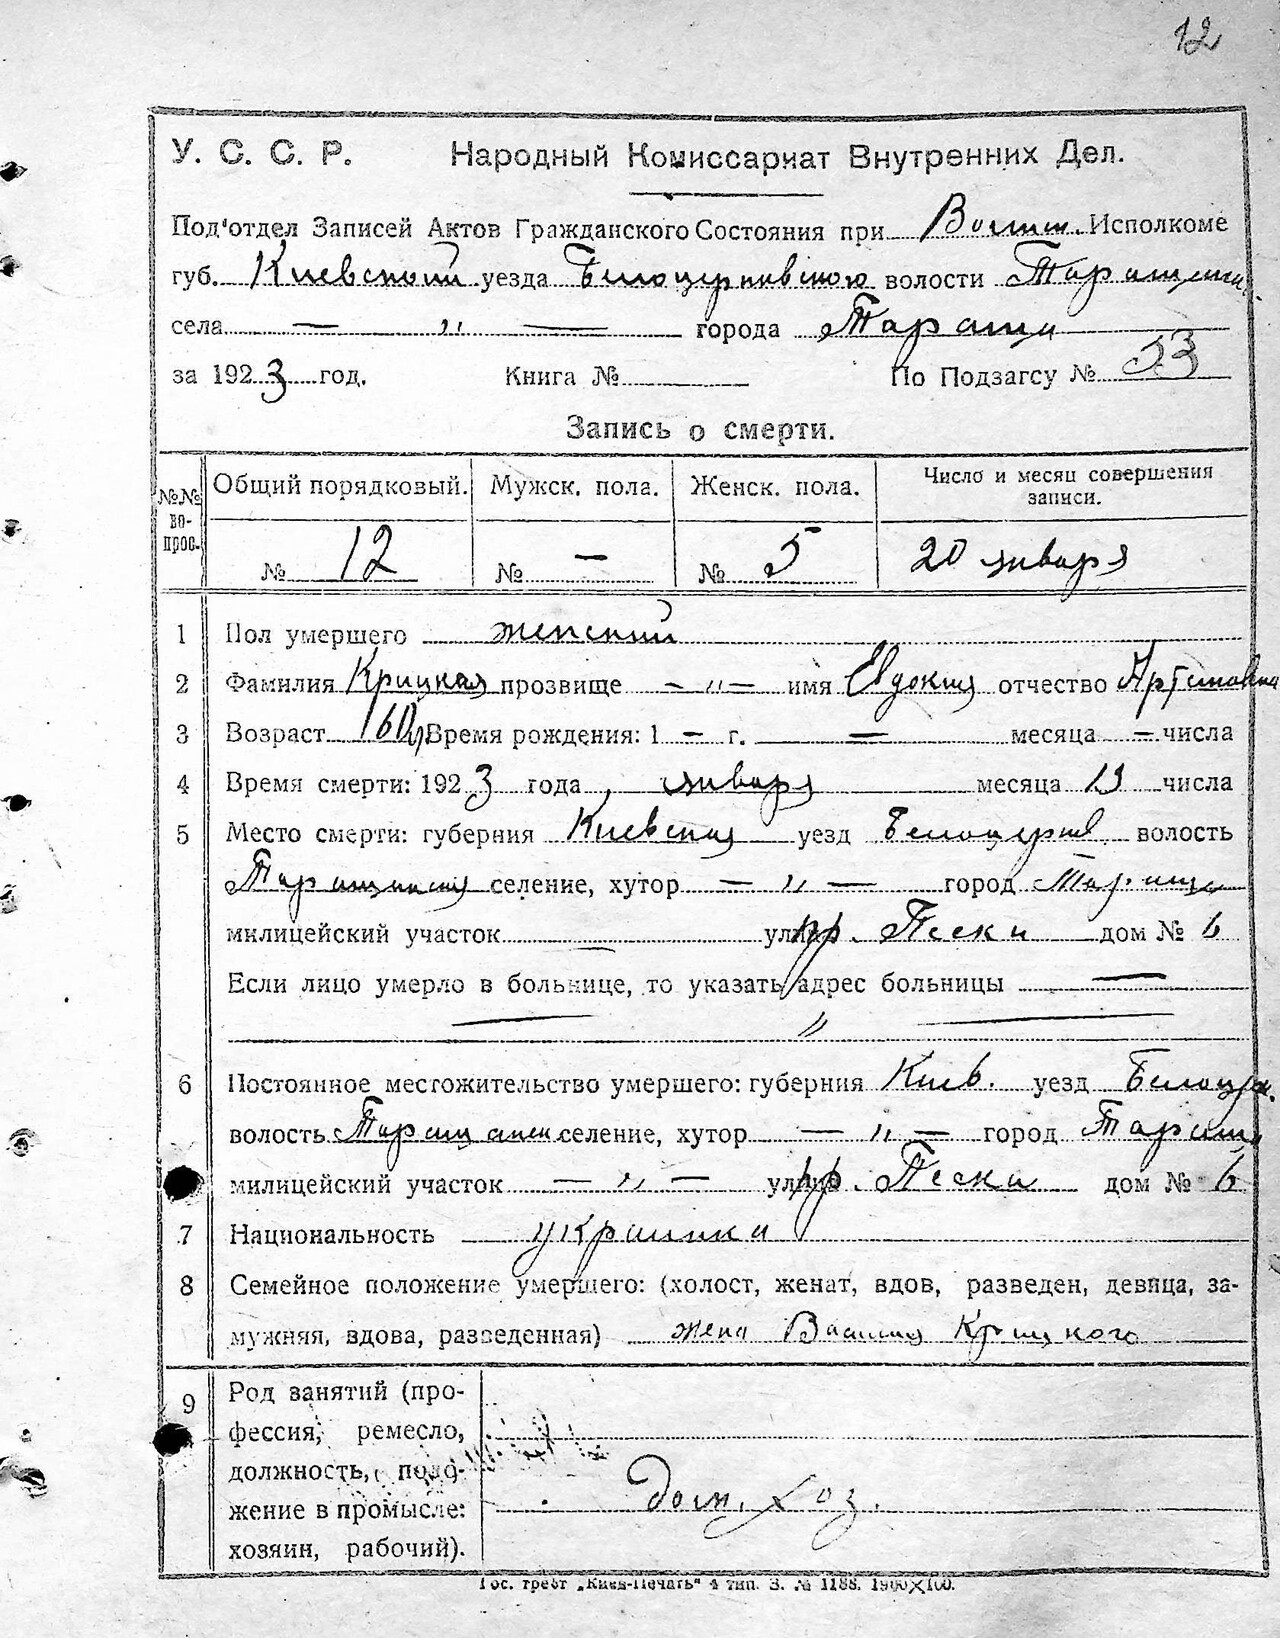 12
У. С. С. Р. Народный Комиссариат Внутренних Дел.
Под'отдел Записей Актов Гражданского Состояния при Исполкоме
губ. Киевской уезда Белоцерковского волости Таращанск.
села — „ — города Таращи
за 1923 год. Книга № По Подзагсу № 53
Запись о смерти.
№№ во-прос. Общий порядковый. Мужск. пола. Женск. пола. Число и месяц совершения записи.
№ 12 № — № 5 20 января
1 Пол умершего женский
2 Фамилия Крицкая прозвище — „ — имя Евдокия отчество Артемовна
3 Возраст 60 Время рождения: 1 — г. — месяца — числа
4 Время смерти: 1923 года января месяца 19 числа
5 Место смерти: губерния Киевская уезд Белоцерков волость
Таращанская селение, хутор — „ — город Тараща
милицейский участок — улица пр. Пески дом № 6
Если лицо умерло в больнице, то указать адрес больницы —
— „ —
6 Постоянное местожительство умершего: губерния Киев. уезд Белоцерк.
волость Таращанск селение, хутор — „ — город Тараща
милицейский участок — „ — улица пр. Пески дом № 6
7 Национальность украинка
8 Семейное положение умершего: (холост, женат, вдов, разведен, девица, за-
мужняя, вдова, разведенная) жена Василия Крицкого
9 Род занятий (про-
фессия, ремесло,
должность, поло-
жение в промысле: дом. хоз.
хозяин, рабочий).
Гос. трест „Киев-Печать" 4 тип. З. № 1188. 1900×100.